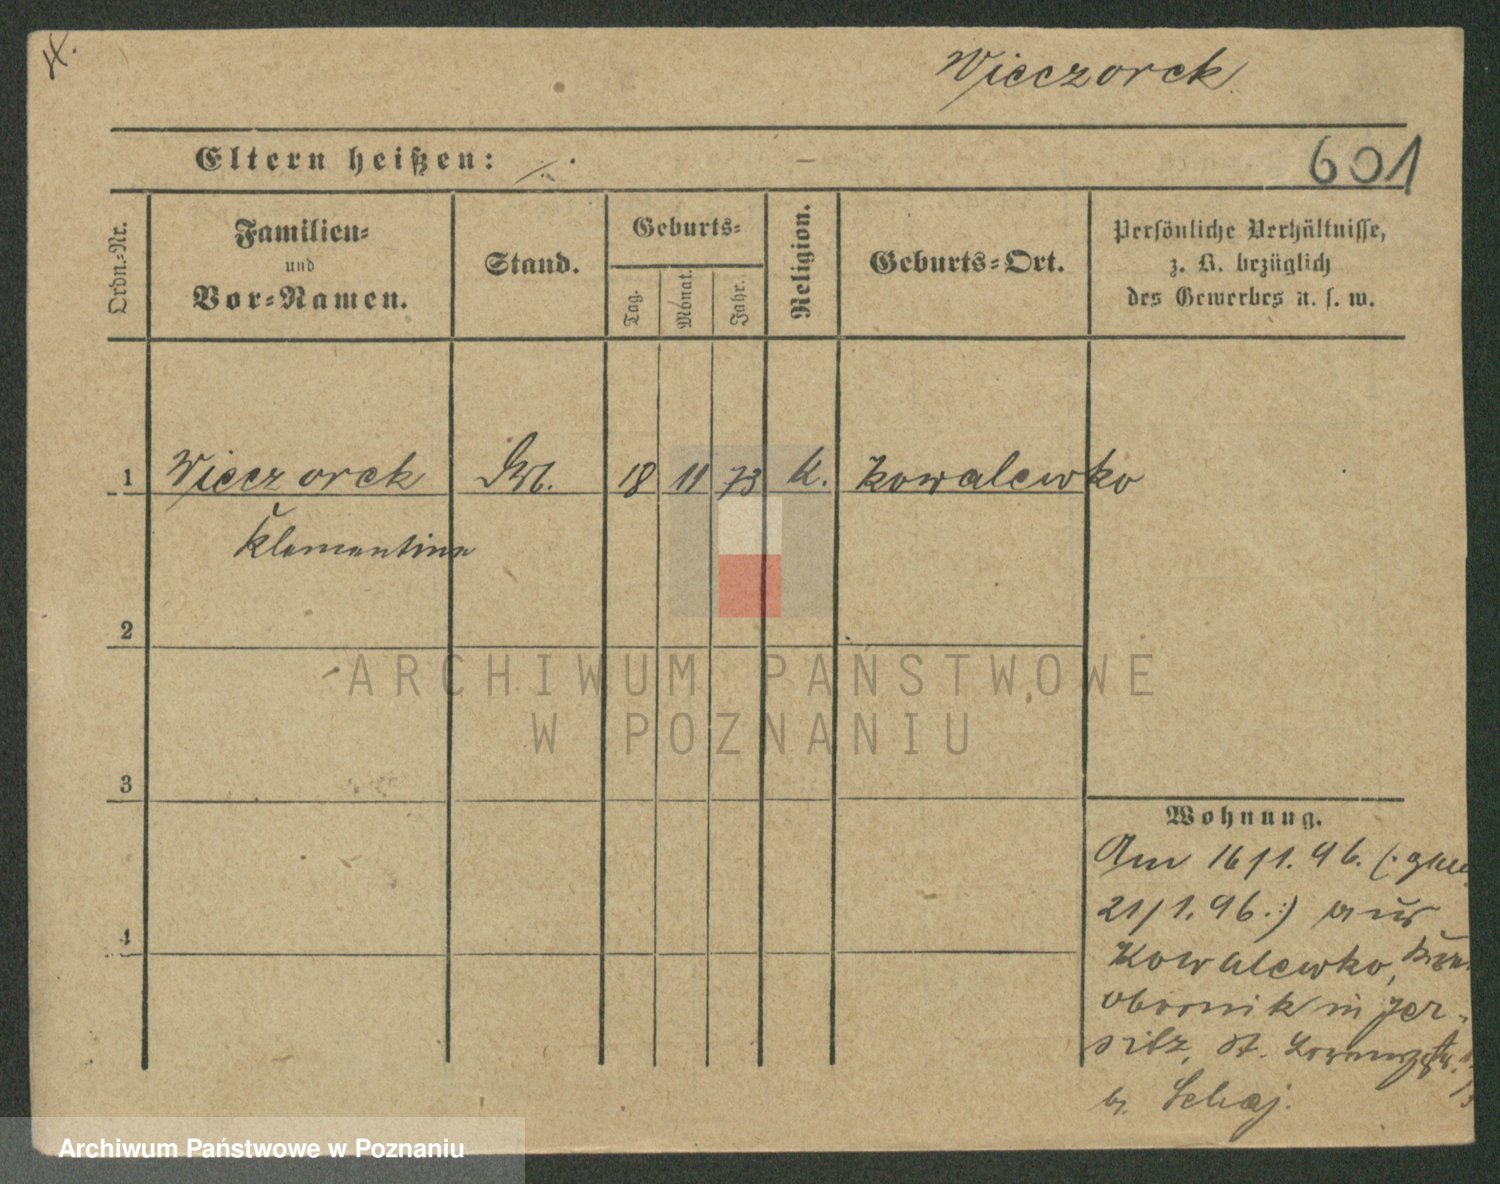 Wieczorek
Eltern heißen: ./.
601
Ordn.-Nr.
Familien-
und
Vor-Namen.
Stand.
Geburts-
Tag.
Monat.
Jahr.
Religion.
Geburts-Ort.
Persönliche Verhältnisse,
z. B. bezüglich
des Gewerbes u. s. w.
1 Wieczorek 18 11 73 K. Kowalewko
Klementine
2
ARCHIWUM PAŃSTWOWE
W POZNANIU
3
Wohnung.
Am 16/1.96. (: gem.
21/1.96.:) aus
Kowalewko, Kr.
Obornik in Jer-
sitz, St. Lorenzstr.
b. Schaj.
4
Archiwum Państwowe w Poznaniu